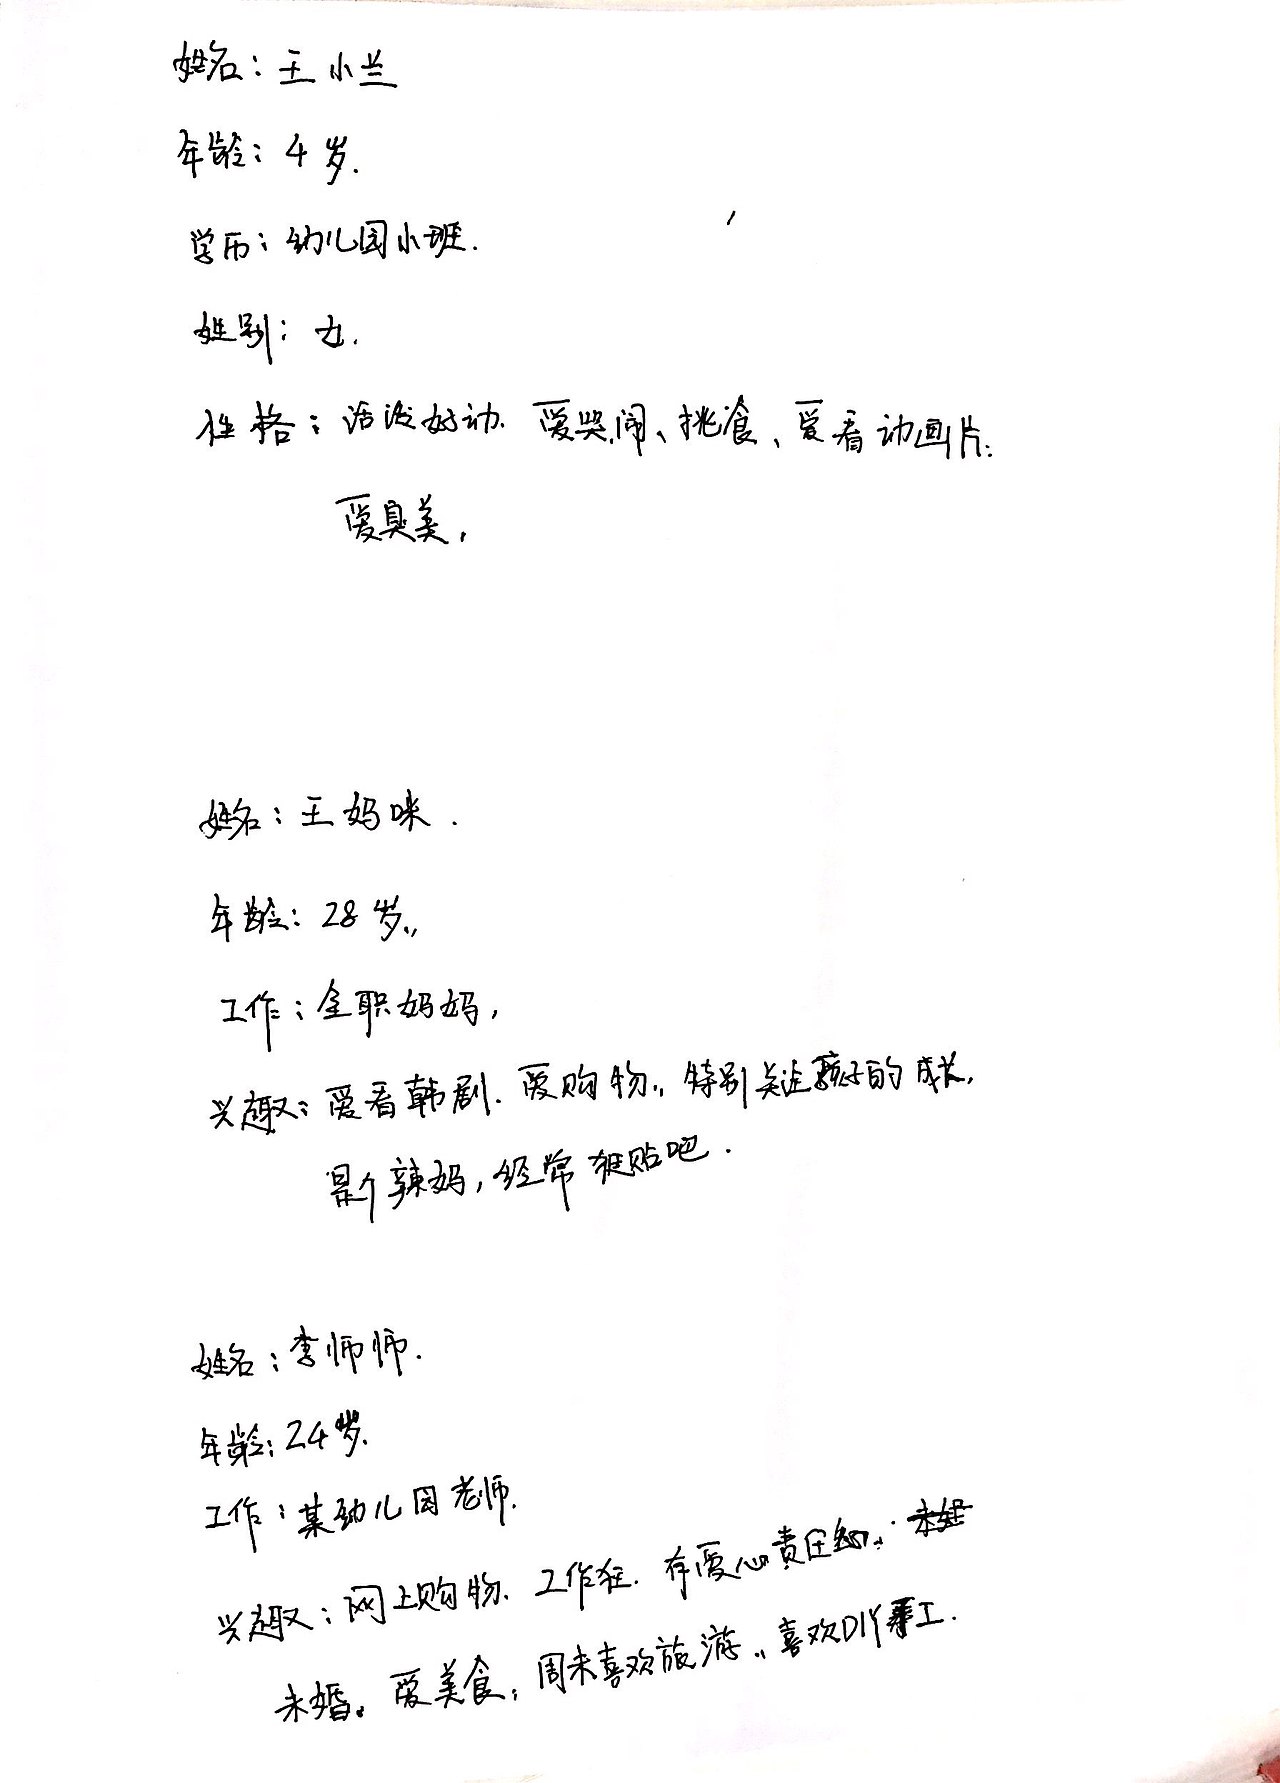 姓名：王小兰
年龄：4岁.
学历：幼儿园小班.
姓别：女.
性格：活泼好动. 爱哭闹、挑食、爱看动画片.
爱臭美,
姓名：王妈咪.
年龄：28岁.,
工作：全职妈妈,
兴趣：爱看韩剧. 爱购物., 特别关注孩子的成长,
是个辣妈, 经常逛贴吧.
姓名：李师师.
年龄：24岁.
工作：某幼儿园老师.
兴趣：网上购物. 工作狂. 有爱心责任
未婚. 爱美食, 周末喜欢旅游., 喜欢DIY手工.